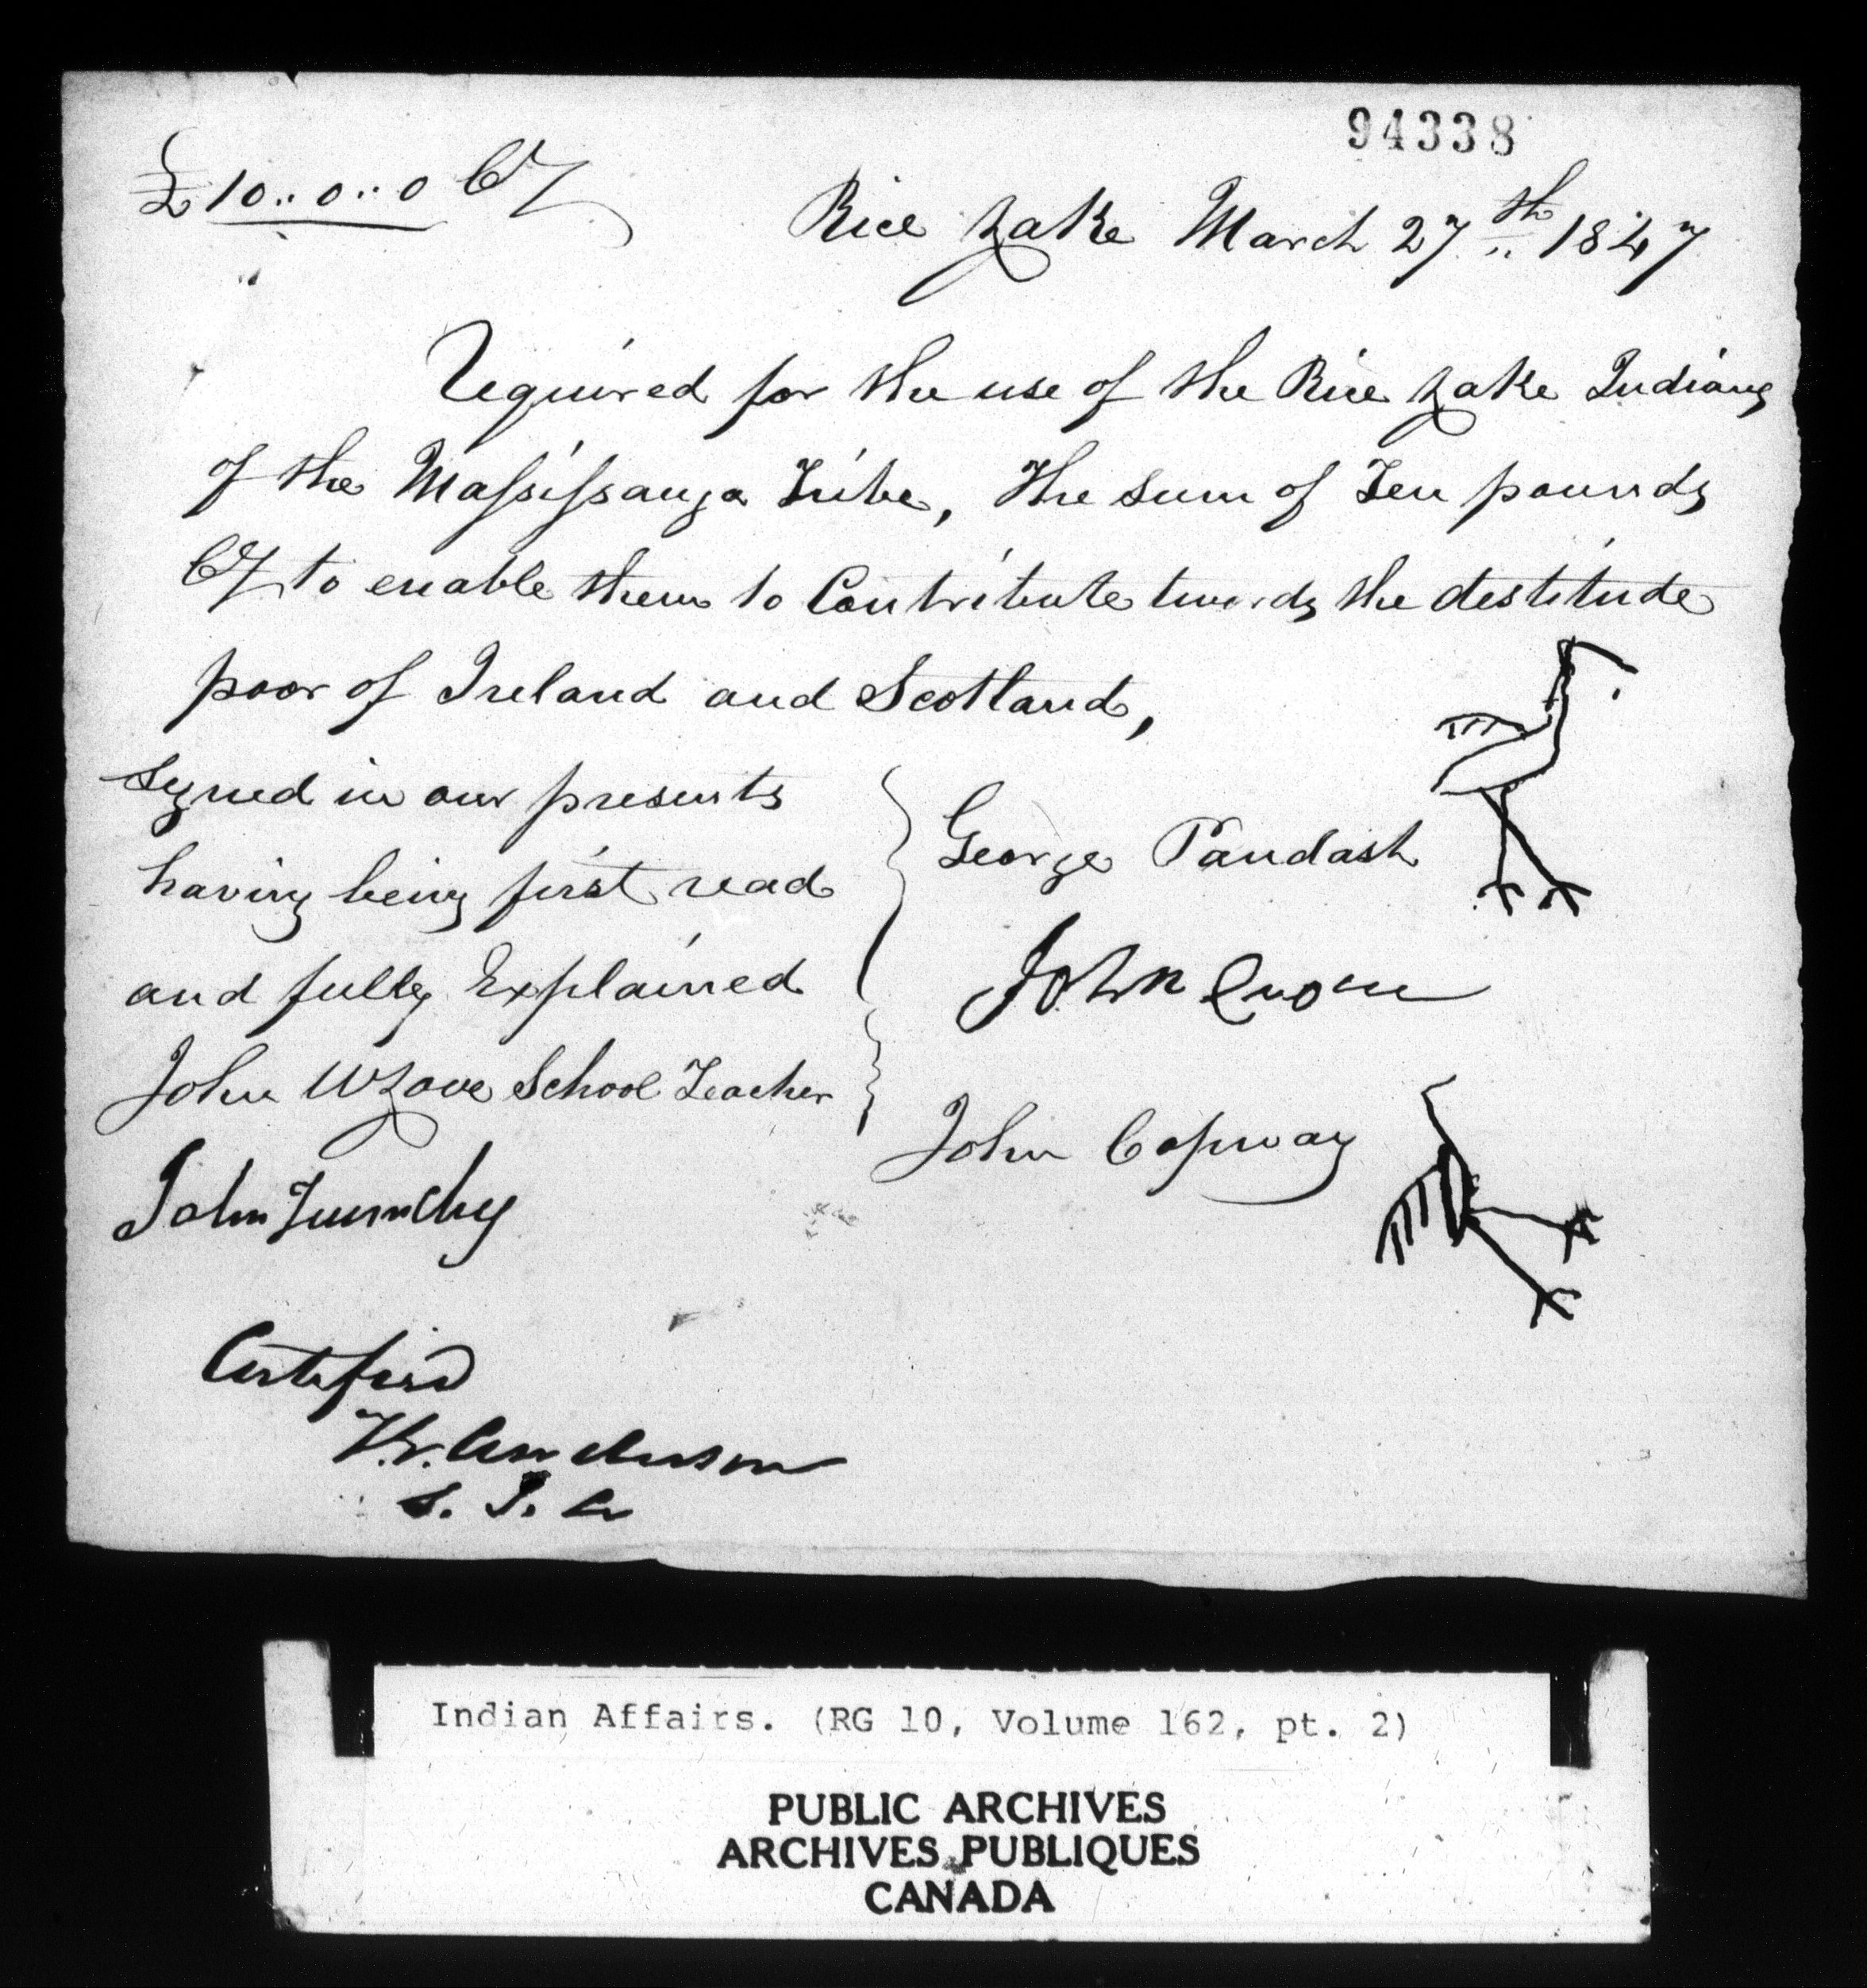 94338
£10..0..0 Cy
Rice Lake March 27th 1847
Required for the use of the Rice Lake Indians
of the Massissauga Tribe, The sum of Ten pounds
Cy to enable them to Contribute towards the destitude
poor of Ireland and Scotland,
Signed in our presents
having being first read
and fully Explained
John W Love School Teacher
John Sunday
George Paudash
John Crow
John Copway
Certified
T.G. Anderson
S. I. A
Indian Affairs. (RG 10, Volume 162, pt. 2)
PUBLIC ARCHIVES
ARCHIVES PUBLIQUES
CANADA